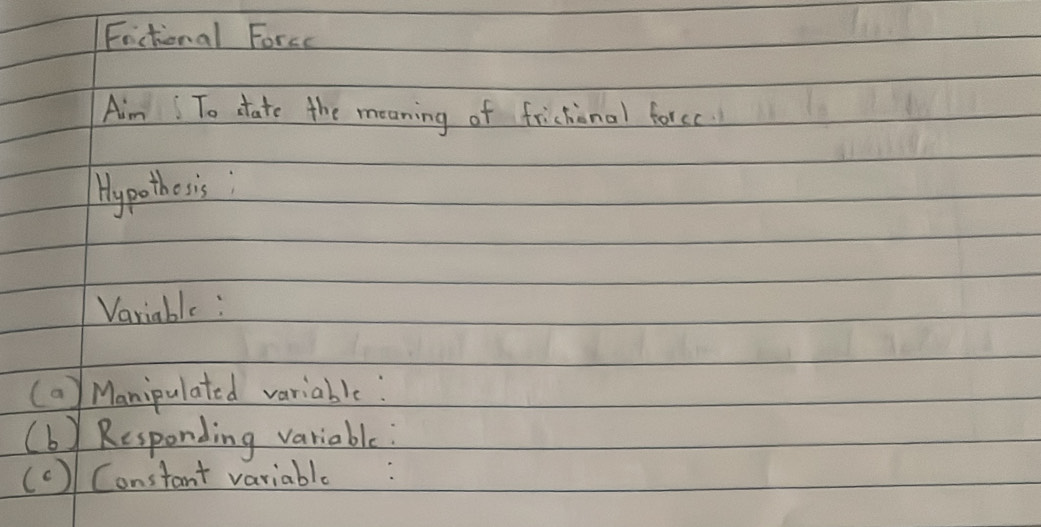 Frictional Force
Aim : To state the meaning of frictional force.
Hypothesis :
Variable :
(a) Manipulated variable :
(b) Responding variable :
(c) Constant variable :